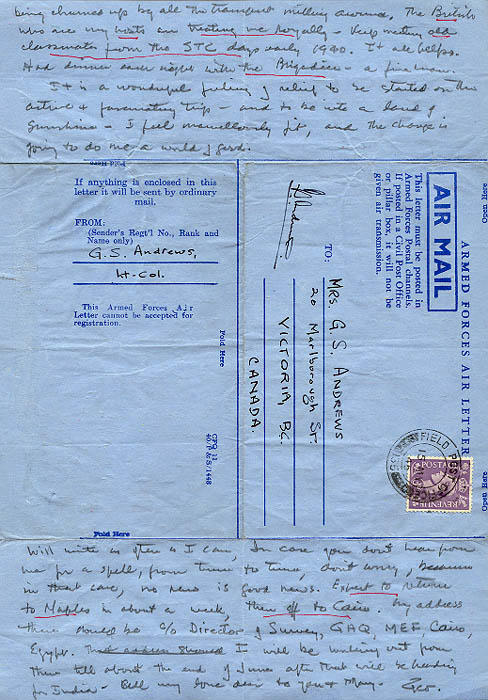 being churned up by all the transport milling around. The British
who are my hosts are treating me royally - Keep meeting old
classmates from the STC days early 1940. It all helps.
Had dinner last night with the Brigadier - a fine man.
It is a wonderful feeling of relief to be started on this
active & fascinating trip - and to be into a land of
Sunshine - I feel marvellously fit, and the change is
going to do me a world of good.
Fold Here
Open Here
If anything is enclosed in this
letter it will be sent by ordinary
mail.
FROM:
(Sender's Regt'l No., Rank and
Name only)
G.S. Andrews,
Lt-Col.
This Armed Forces Air
Letter cannot be accepted for
registration.
Fold Here
CFPQ 11
40/P & S/1448
Fold Here
ARMED FORCES AIR LETTER
AIR MAIL
This letter must be posted in
Armed Forces Postal channels.
If posted in a Civil Post Office
or pillar box, it will not be
given air transmission.
TO:
MRS. G.S. ANDREWS
20 Marlborough St.
VICTORIA, B.C.
CANADA.
G.S. Andrews
FIELD POST OFFICE
POSTAGE
REVENUE
Open Here
Will write as often as I can, In case you don't hear from
me for a spell, from time to time, don't worry, because
in that case, no news is good news. Expect to return
to Naples in about a week, then off to Cairo. My address
there should be c/o Director of Survey, GHQ, MEF, Cairo,
Egypt. That address should I will be working out from
there till about the end of June after that will be heading
for India - Bell my love dear to you & Mary - Geo.